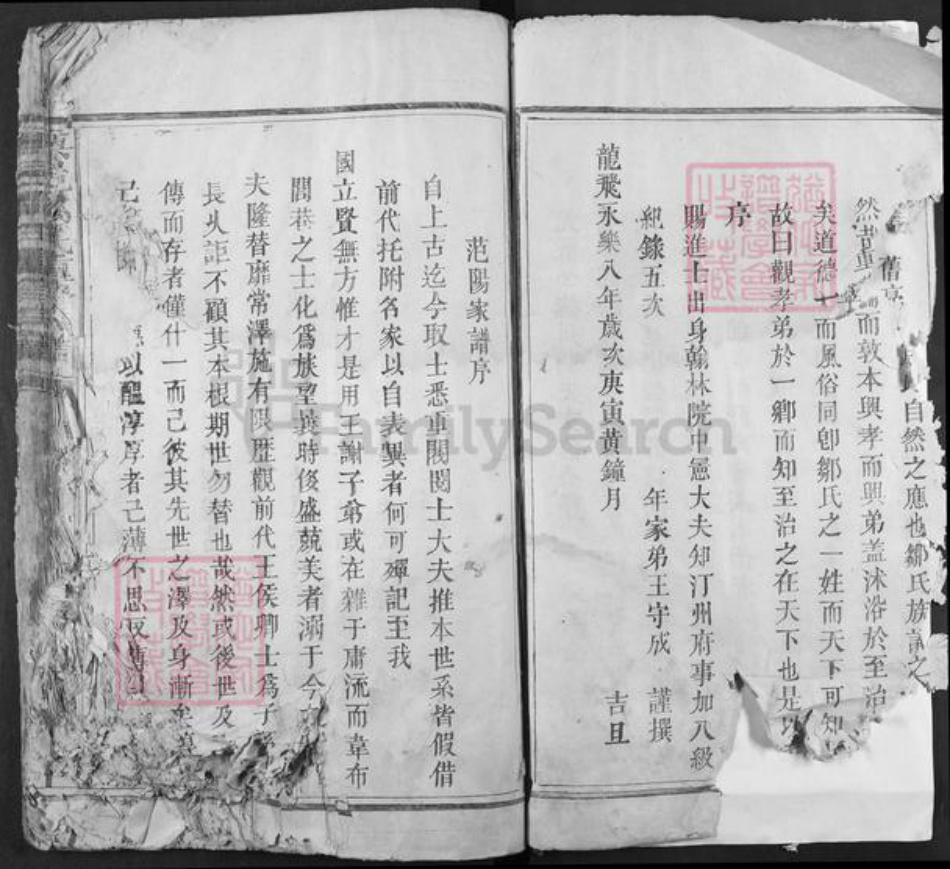 舊序
自然之應也鄒氏族譜之
然昔
而敦本興孝而興弟盖沐浴於至治
矣道德七而風俗同卽鄒氏之一姓而天下可知
故曰觀孝弟於一鄉而知至治之在天下也是以
序
賜進士出身翰林院中憲大夫知汀州府事加八級
紀錄五次 年家弟王守成 謹撰
龍飛永樂八年歲次庚寅黃鐘月 吉旦
范陽家譜序
自上古迄今取士悉重閥閱士大夫推本世系皆假借
前代托附名家以自表異者何可殫記至我
國立賢無方惟才是用王謝子弟或在雜于庸流而韋布
閭巷之士化爲族望異時俊盛競美者溺于今
夫隆替靡常澤施有限歷觀前代王侯卿士爲子
長久詎不顧其本根期世勿替也哉然或後世及
傳而存者僅什一而己彼其先世之澤及身漸
己
以醞淳淳者己薄不思
FamilySearch